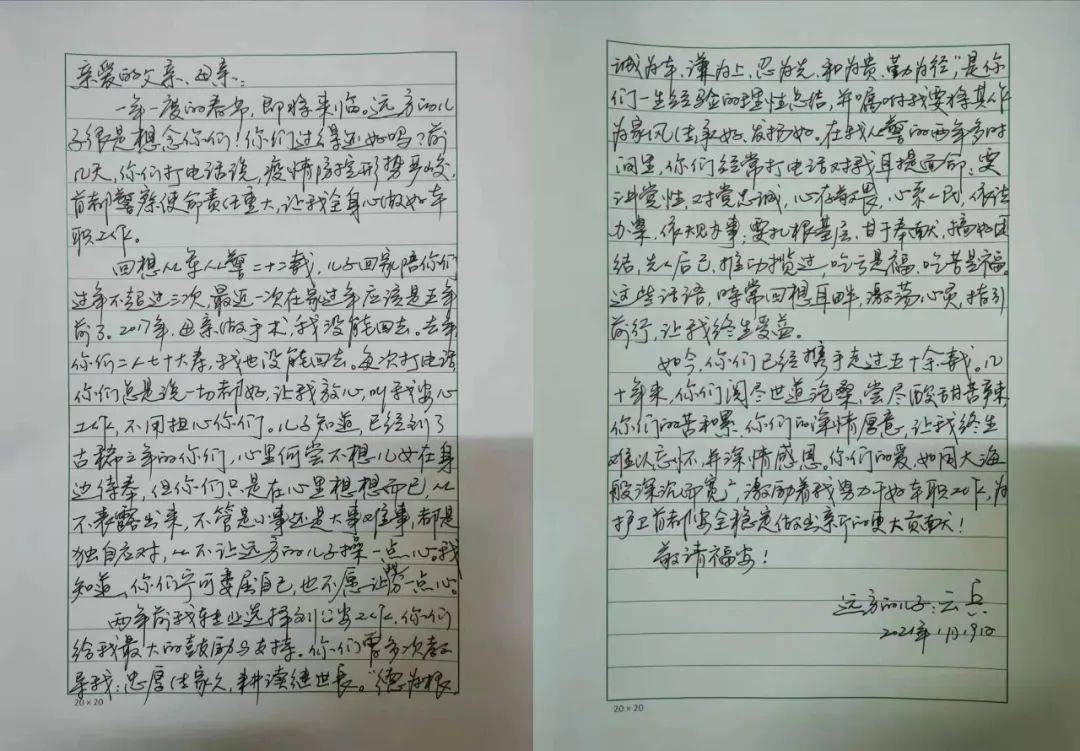 亲爱的父亲、母亲:
一年一度的春节,即将来临。远方的儿
子很是想念你们!你们过得还好吗?前
几天,你们打电话说,疫情防控形势严峻,
首都警察使命责任重大,让我全身心做好本
职工作。
回想从军从警二十二载,儿子回家陪你们
过年不超过三次,最近一次在家过年应该是五年
前了。2017年,母亲做手术,我没能回去。去年
你们二人七十大寿,我也没能回去。每次打电话,
你们总是说一切都好,让我放心,叫我安心
工作,不用担心你们。儿子知道,已经到了
古稀之年的你们,心里何尝不想儿女在身
边侍奉,但你们只是在心里想想而已,从
不表露出来,不管是小事还是大事难事,都是
独自应对,从不让远方的儿子操一点心。我
知道,你们宁可委屈自己,也不愿让我劳一点心。
两年前我转业选择到公安工作,你们
给我最大的鼓励与支持。你们曾多次教
导我:忠厚传家久,耕读继世长。“德为根、
20×20
诚为本,谦为上,忍为先,和为贵,勤为径,”是你
们一生经验的理性总结,并嘱咐我要将其作
为家风传承好、发扬好。在我从警的两年多时
间里,你们经常打电话对我耳提面命:要
讲党性,对党忠诚,心存敬畏,心系人民,依法
办案,依规办事;要扎根基层,甘于奉献,搞好团
结,先人后己,推功揽过,吃亏是福,吃苦是福。
这些话语,时常回想耳畔,激荡心灵,指引
前行,让我终生受益。
如今,你们已经携手走过五十余载。几
十年来,你们阅尽世道沧桑,尝尽酸甜苦辣,
你们的苦和累,你们的深情厚意,让我终生
难以忘怀,并深情感恩。你们的爱,如同大海
般深沉而宽广,激励着我努力干好本职工作,为
护卫首都安全稳定做出亲所的更大贡献!
敬请福安!
远方的儿子:云兵
2021年1月19日
20×20